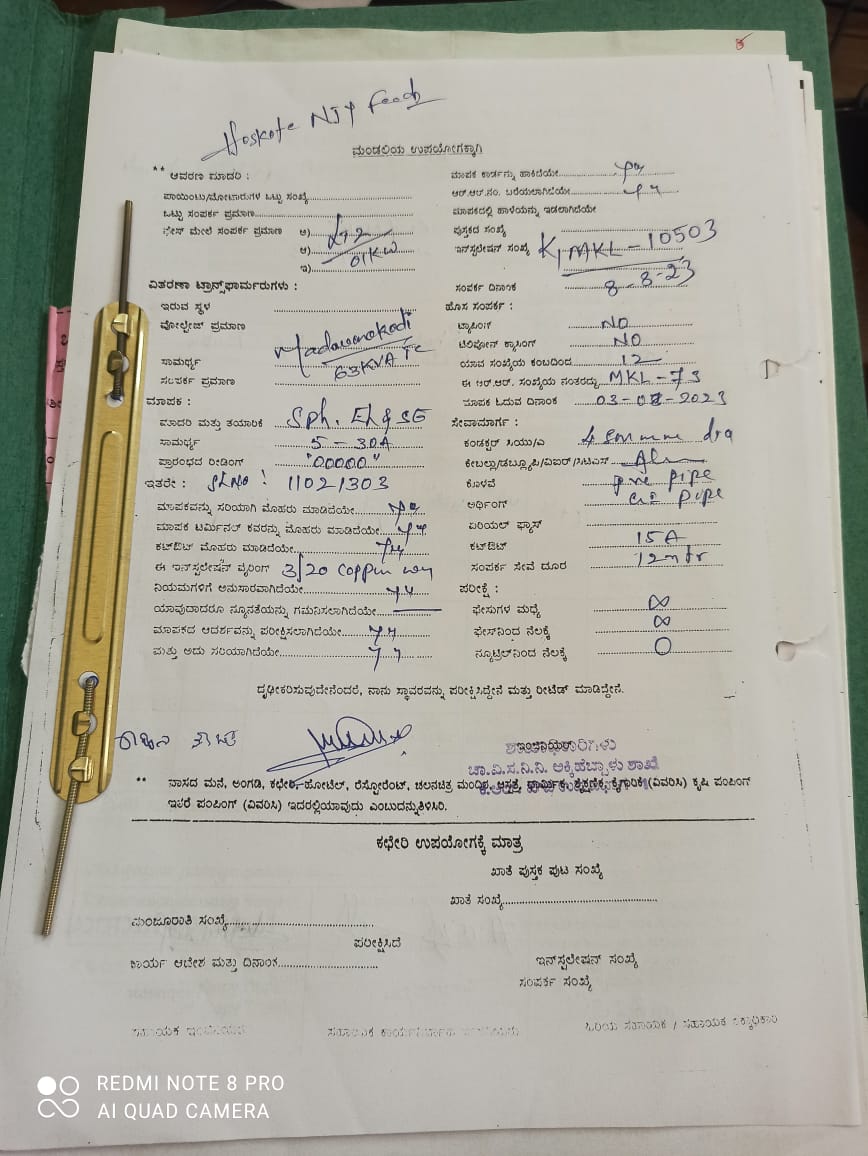 Hoskote NJY Feeder
ಮಂಡಲಿಯ ಉಪಯೋಗಕ್ಕಾಗಿ
** ಆವರಣ ಮಾದರಿ :
ಪಾಯಿಂಟು/ಮೋಟಾರುಗಳ ಒಟ್ಟು ಸಂಖ್ಯೆ
ಒಟ್ಟು ಸಂಪರ್ಕ ಪ್ರಮಾಣ
ಫೇಸ್ ಮೇಲೆ ಸಂಪರ್ಕ ಪ್ರಮಾಣ ಅ) LT2
ಆ) 01KW
ಇ)
ವಿತರಣಾ ಟ್ರಾನ್ಸ್‌ಫಾರ್ಮರುಗಳು :
ಇರುವ ಸ್ಥಳ
ವೋಲ್ಟೇಜ್ ಪ್ರಮಾಣ
ಸಾಮರ್ಥ್ಯ 63KVA Tc
ಸಂಪರ್ಕ ಪ್ರಮಾಣ
ಮಾಪಕ :
ಮಾದರಿ ಮತ್ತು ತಯಾರಿಕೆ
ಸಾಮರ್ಥ್ಯ 5-30A
ಪ್ರಾರಂಭದ ರೀಡಿಂಗ್ "00000"
ಇತರೇ : SLNO : 11021303
ಮಾಪಕವನ್ನು ಸರಿಯಾಗಿ ಮೊಹರು ಮಾಡಿದೆಯೇ
ಮಾಪಕ ಟರ್ಮಿನಲ್ ಕವರನ್ನು ಮೊಹರು ಮಾಡಿದೆಯೇ
ಕಟ್‌ಔಟ್ ಮೊಹರು ಮಾಡಿದೆಯೇ
ಈ ಇನ್‌ಸ್ಟಲೇಷನ್ ವೈರಿಂಗ್ 3/20 Copper
ನಿಯಮಗಳಿಗೆ ಅನುಸಾರವಾಗಿದೆಯೇ
ಯಾವುದಾದರೂ ನ್ಯೂನತೆಯನ್ನು ಗಮನಿಸಲಾಗಿದೆಯೇ
ಮಾಪಕದ ಆದರ್ಶವನ್ನು ಪರೀಕ್ಷಿಸಲಾಗಿದೆಯೇ
ಮತ್ತು ಅದು ಸರಿಯಾಗಿದೆಯೇ
ಮಾಪಕ ಕಾರ್ಡನ್ನು ಹಾಕಿದೆಯೇ
ಆರ್.ಆರ್.ನಂ. ಬರೆಯಲಾಗಿದೆಯೇ
ಮಾಪಕದಲ್ಲಿ ಹಾಳೆಯನ್ನು ಇಡಲಾಗಿದೆಯೇ
ಪುಸ್ತಕದ ಸಂಖ್ಯೆ
ಇನ್‌ಸ್ಟಲೇಷನ್ ಸಂಖ್ಯೆ MKL-10503
ಸಂಪರ್ಕ ದಿನಾಂಕ 8-8-23
ಹೊಸ ಸಂಪರ್ಕ :
ಟ್ಯಾಪಿಂಗ್ NO
ಟೆಲಿಫೋನ್ ಕ್ರಾಸಿಂಗ್ NO
ಯಾವ ಸಂಖ್ಯೆಯ ಕಂಬದಿಂದ 12
ಈ ಆರ್.ಆರ್. ಸಂಖ್ಯೆಯ ನಂತರದ್ದು MKL-73
ಮಾಪಕ ಓದುವ ದಿನಾಂಕ 03-08-2023
ಸೇವಾಮಾರ್ಗ :
ಕಂಡಕ್ಟರ್ ಸಿಯು/ಎ
ಕೇಬಲ್ಲು/ಡಬ್ಲ್ಯೂಪಿ/ವಿಐಆರ್/ಸಿಟಿಎಸ್
ಕೊಳವೆ pipe
ಅರ್ಥಿಂಗ್ pipe
ಏರಿಯಲ್ ಫ್ಯೂಸ್
ಕಟ್‌ಔಟ್ 15A
ಸಂಪರ್ಕ ಸೇವೆ ದೂರ 12mtr
ಪರೀಕ್ಷೆ :
ಫೇಸುಗಳ ಮಧ್ಯೆ ∞
ಫೇಸ್‌ನಿಂದ ನೆಲಕ್ಕೆ ∞
ನ್ಯೂಟ್ರಲ್‌ನಿಂದ ನೆಲಕ್ಕೆ 0
ದೃಢೀಕರಿಸುವುದೇನೆಂದರೆ, ನಾನು ಸ್ಥಾವರವನ್ನು ಪರೀಕ್ಷಿಸಿದ್ದೇನೆ ಮತ್ತು ರೀಟೆಡ್ ಮಾಡಿದ್ದೇನೆ.
ಚಾ.ವಿ.ಸ.ನಿ.ನಿ. ಅಕ್ಕಿಹೆಬ್ಬಾಳು ಶಾಖೆ
** ವಾಸದ ಮನೆ, ಅಂಗಡಿ, ಕಛೇರಿ, ಹೋಟೆಲ್, ರೆಸ್ಟೋರೆಂಟ್, ಚಲನಚಿತ್ರ ಮಂದಿರ, ಆಸ್ಪತ್ರೆ, ಧಾರ್ಮಿಕ, ಶೈಕ್ಷಣಿಕ, ಕೈಗಾರಿಕೆ (ವಿವರಿಸಿ) ಕೃಷಿ ಪಂಪಿಂಗ್
ಇತರೆ ಪಂಪಿಂಗ್ (ವಿವರಿಸಿ) ಇದರಲ್ಲಿಯಾವುದು ಎಂಬುದನ್ನು ತಿಳಿಸಿರಿ.
ಕಛೇರಿ ಉಪಯೋಗಕ್ಕೆ ಮಾತ್ರ
ಖಾತೆ ಪುಸ್ತಕ ಪುಟ ಸಂಖ್ಯೆ
ಖಾತೆ ಸಂಖ್ಯೆ
ಮಂಜೂರಾತಿ ಸಂಖ್ಯೆ
ಪರೀಕ್ಷಿಸಿದೆ
ಕಾರ್ಯ ಆದೇಶ ಮತ್ತು ದಿನಾಂಕ
ಇನ್‌ಸ್ಟಲೇಷನ್ ಸಂಖ್ಯೆ
ಸಂಪರ್ಕ ಸಂಖ್ಯೆ
ಹಿರಿಯ ಸಹಾಯಕ / ಸಹಾಯಕ ಲೆಕ್ಕಾಧಿಕಾರಿ
REDMI NOTE 8 PRO
AI QUAD CAMERA